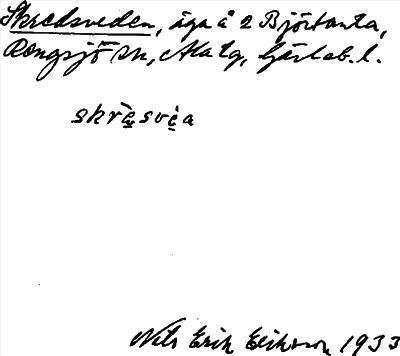 Skredsveden, äga å 2 Björtanta,
Rengsjö sn, Ala tg, Gävleb. l.
skrè̤svè̤a
Nils Erik Eriksson 1933